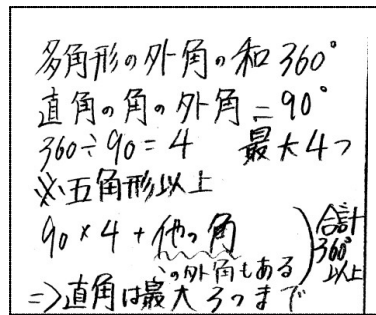 多角形の外角の和360°
直角の角の外角=90°
360÷90=4 最大4つ
※五角形以上
90×4+他の角
の外角もある
合計
360°
以上
⇒直角は最大3つまで